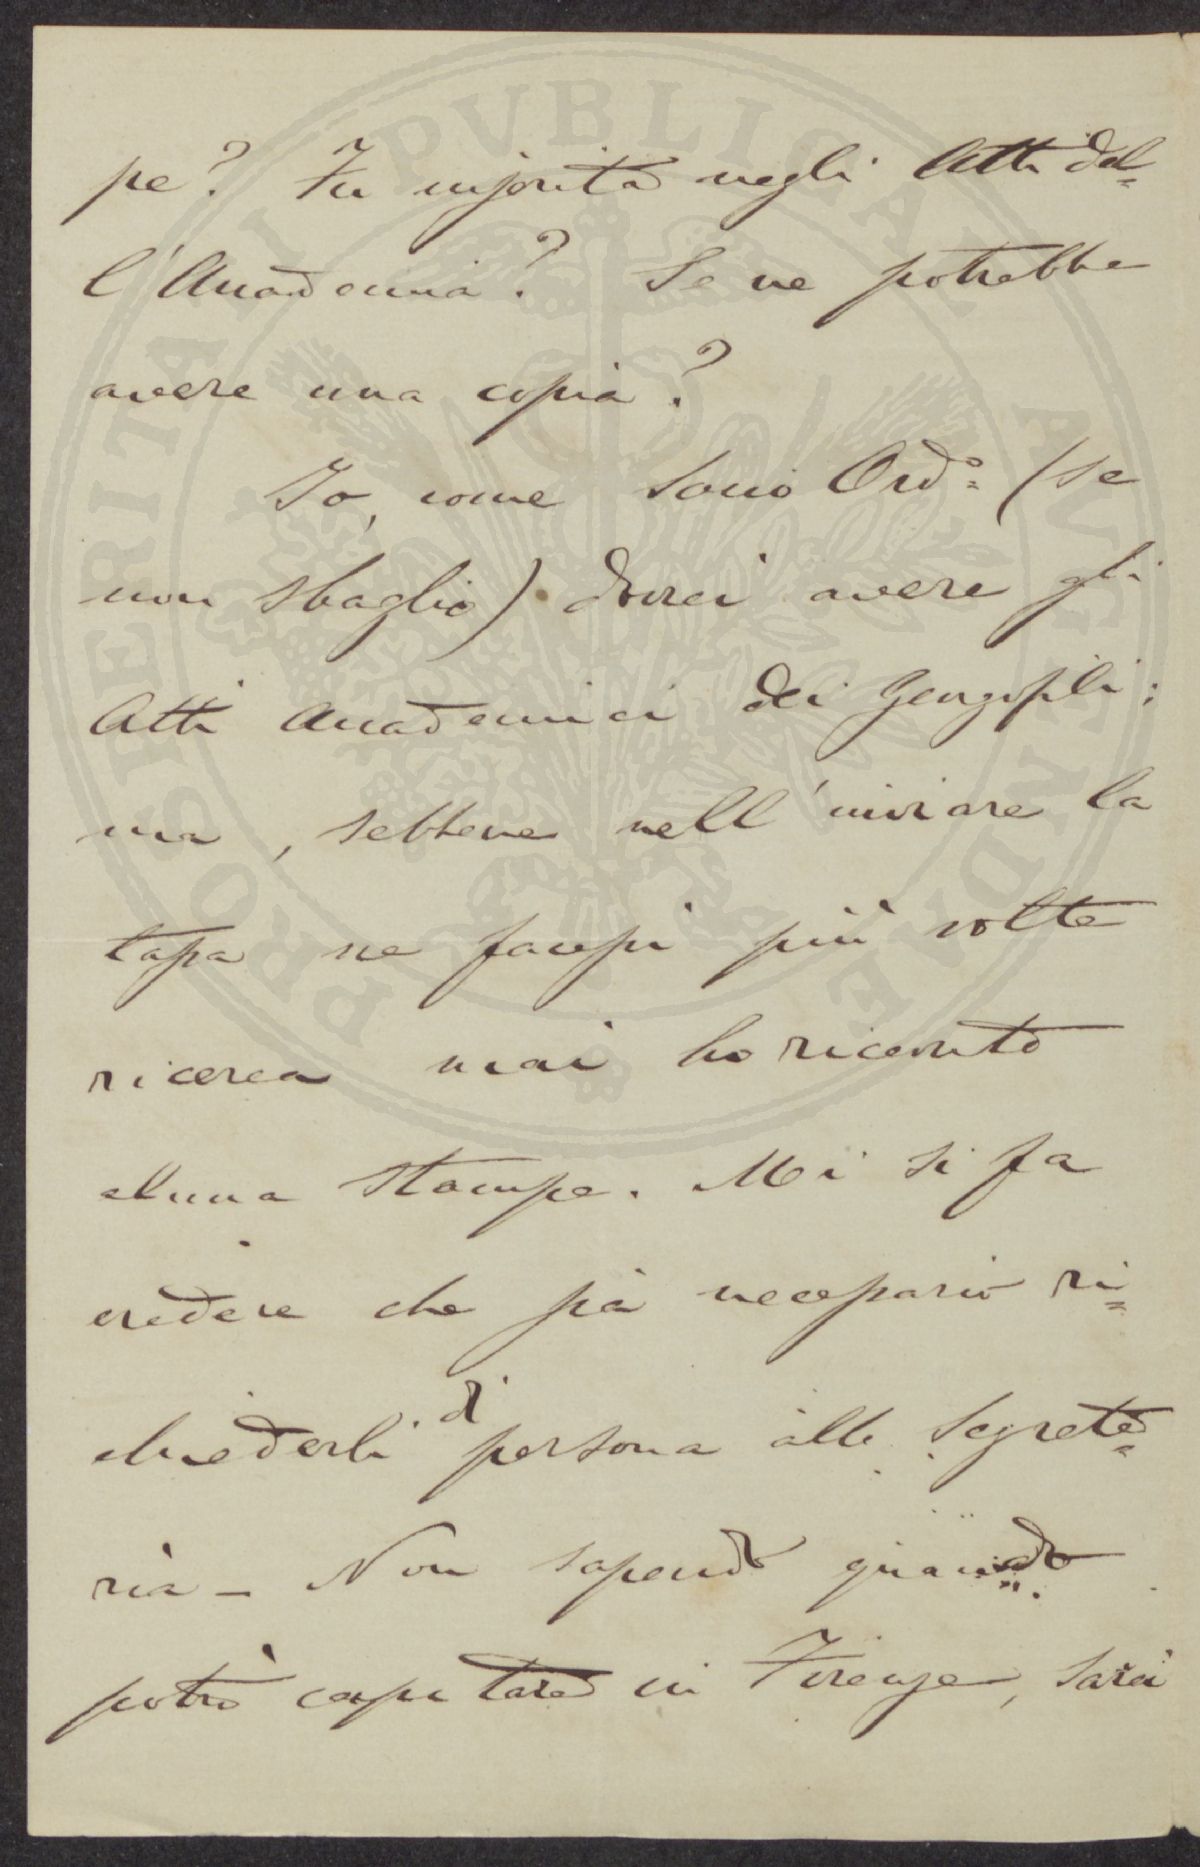 pe? Fu inserita negli Atti del=
l'Accademia? Se ne potrebbe
avere una copia?
Io, come Socio Ord.º (se
non sbaglio) dovrei avere gli
Atti Accademici dei Georgofili:
ma, sebbene nell'inviare la
tassa ne facessi più volte
ricerca mai ho ricevuto
alcuna stampe. Mi si fa
credere che sia necessario ri=
chiederli di persona alla Segrete=
ria - Non sapendo quando
potrò capitare in Firenze, sarei
PROSPERITATI PUBLICAE AUGENDAE